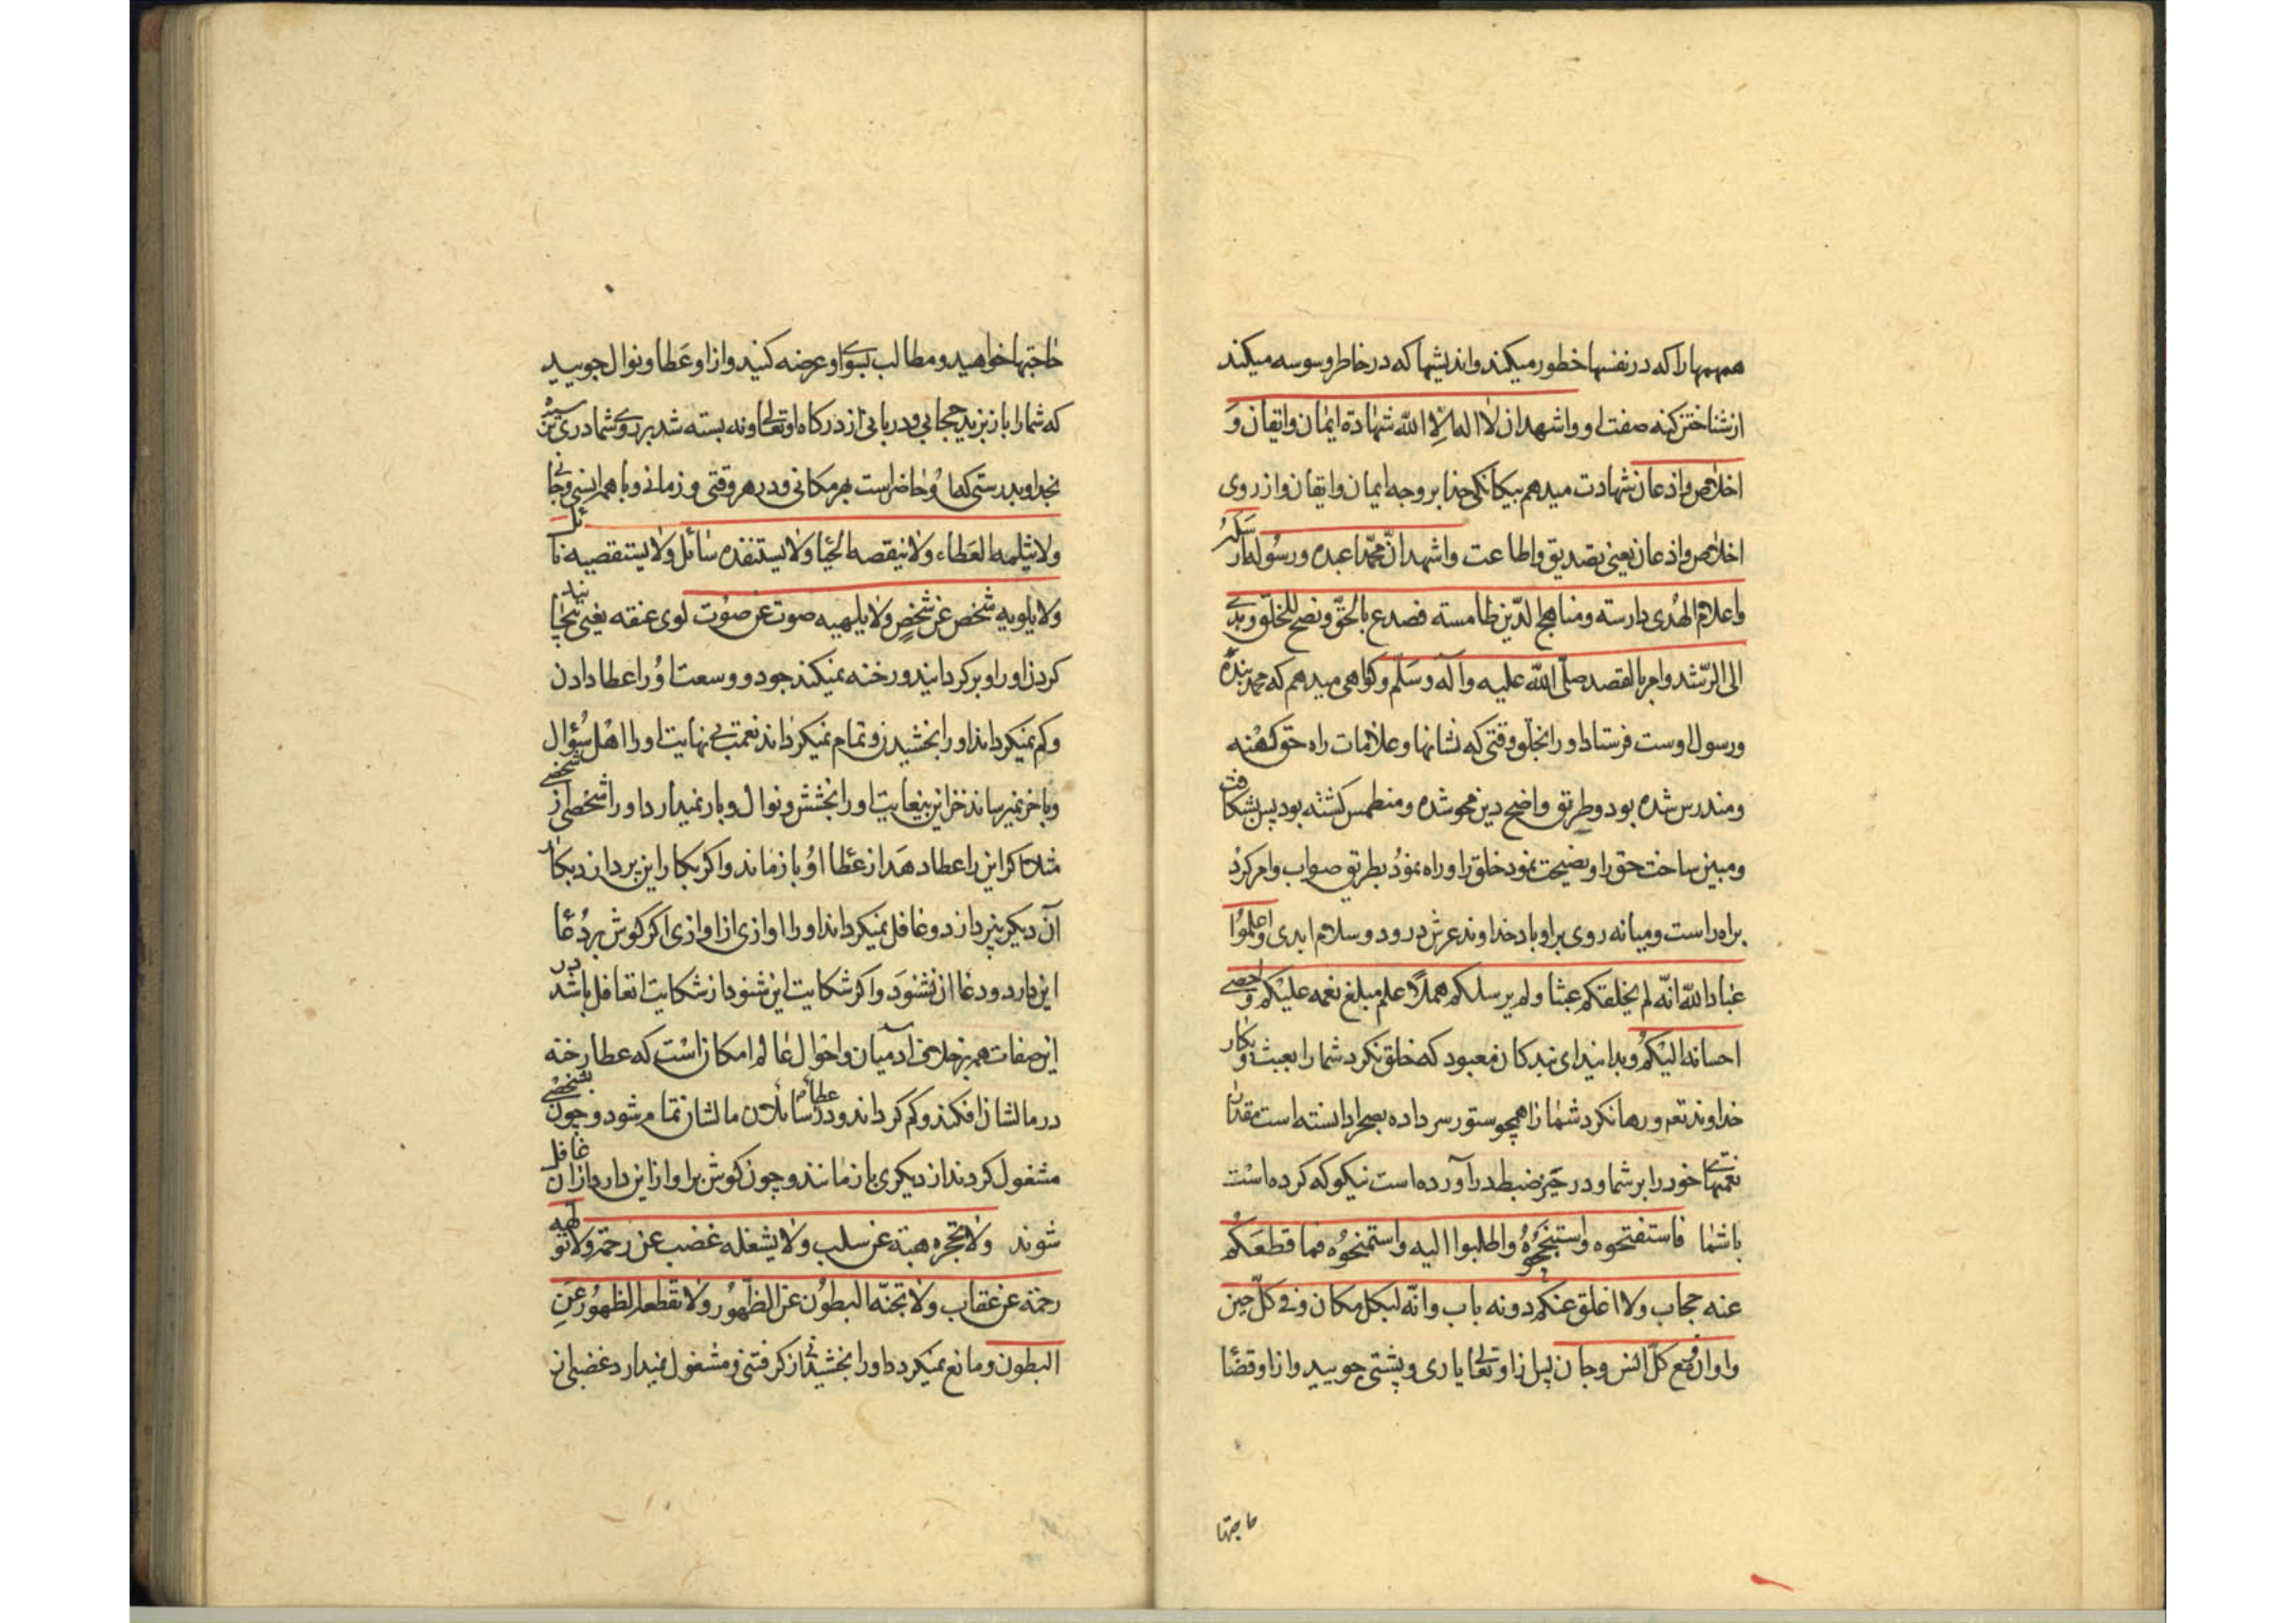 همهمها را که در نفسها خطور میکند و اندیشها که در خاطر وسوسه میکند
از شناختن کنه صفت او و اشهد ان لا اله الا الله شهادة ایمان و ایقان و
اخلاص و اذعان شهادت میدهم بیکانکی خدا بر وجه ایمان و ایقان و از روی
اخلاص و اذعان یعنی تصدیق و اطاعت و اشهد انّ محمّدا عبده و رسوله ارسله
و اعلام الهُدی دارسته و مناهج الدّین طامسته فصدع بالحقّ و نصح للخلق و هدی
الی الرّشد و امر بالقصد صلّی الله علیه و آله و سَلّم و کواهی میدهم که محمد بنده
و رسول اوست فرستاد او را بخلق وقتی که نشانها و علامات راه حق کهنه
و مندرس شده بود و طریق واضح دین محو شده و منطمس کشته بود پس بشکافت
و مبین ساخت حق را و نصیحت نمود خلق را و راه نمود بطریق صواب و امر کرد
براه راست و میانه روی بر او باد خداوند عرش درود و سلام ابدی و اعلموا
عباد الله انّه لم یخلقکم عبثا و لم یرسلکم هملاً علم مبلغ نعمه علیکم و احصی
احسانه الیکم و بدانید ای بندکان معبود که خلق نکرد شما را بعبث و بیکار
خداوند تعم و رها نکرد شما را همچو ستور سر داده بصحرا دانسته است مقدار
نعمتهای خود را بر شما و در حیّز ضبط در آورده است نیکو که کرده است
با شما فاستفتحوه و استنجحوُه و اطلبوا الیه و استمنحوُه فما قطعَکم
عنه حجاب و لا اغلق عنکم دونه باب و انّه لبکل مکان و فی کلّ حین
و اوان و مع کلّ انس و جان پس از او تعالی یاری و پشتی جویید و از او قضا
حاجتها
حاجتها خواهید و مطالب بسوی او عرضه کنید و از او عَطا و نوال جویید
که شما را باز نبرید حجابی و دربانی از درکاه او تعالی و نه بسته شد بر روی شما در
بخدا و بدرستی که او حاضر است بهر مکانی و در هر وقتی و زمانی و با هر انسی و جانی
و لا یثلمه العَطاء و لا ینقصه الحبا و لا یستنفده سائل و لا یستقصیه نائل
و لا یلویه شخص عن شخصٍ و لا یلهیه صوت عن صوُت لوی عنقه یعنی بیچانید
کردن او را و بر کردانید و رخنه نمیکند جود و وسعت او را عطا دادن
و کم نمیکرداند او را بخشیدن و تمام نمیکرداند نعمت بی نهایت او را اهل سُؤال
و باخر نمیرساند خزاین بیغایت او را بخشش و نوال و باز نمیدارد او را شخصی از شخصی
مثلا اکر این را عطا دهد از عطا او باز نماند و اکر بکار این پردازد بکار
آن دیکر نپردازد و غافل نمیکرداند او را اوازی از اوازی اکر کوش بر دُعا
این دارد و دعا ان نشنوَد و اکر شکایت این شنود از شکایت ان غافل باشد در
این صفات همه بر خلاف آدمیان و احوال عالم امکان است که عطا رخنه
در مالشان افکند و کم کرداند و در عطا سائلان مالشان تمام شود و چون بشخصی
مشغول کردند از دیکری باز مانند و چون کوش بر اواز این دارند از ان غافل
شوند و لا تحجزه هبة عن سلب و لا یشغله غضب عن رحمة و لا تولهه
رحمة عن عقاب و لا تجنّه البطوُن عن الظّهوُر و لا تقطعه الظهوُر عَنِ
البطون و مانع نمیکردد او را بخشیدنی از کرفتنی و مشغول نمیدارد غضبی از